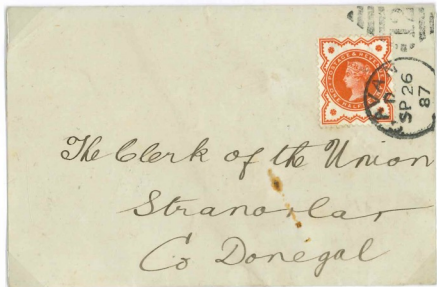 POSTAGE & REVENUE
HALF
SP 26
87
The Clerk of the Union
Stranorlar
Co Donegal